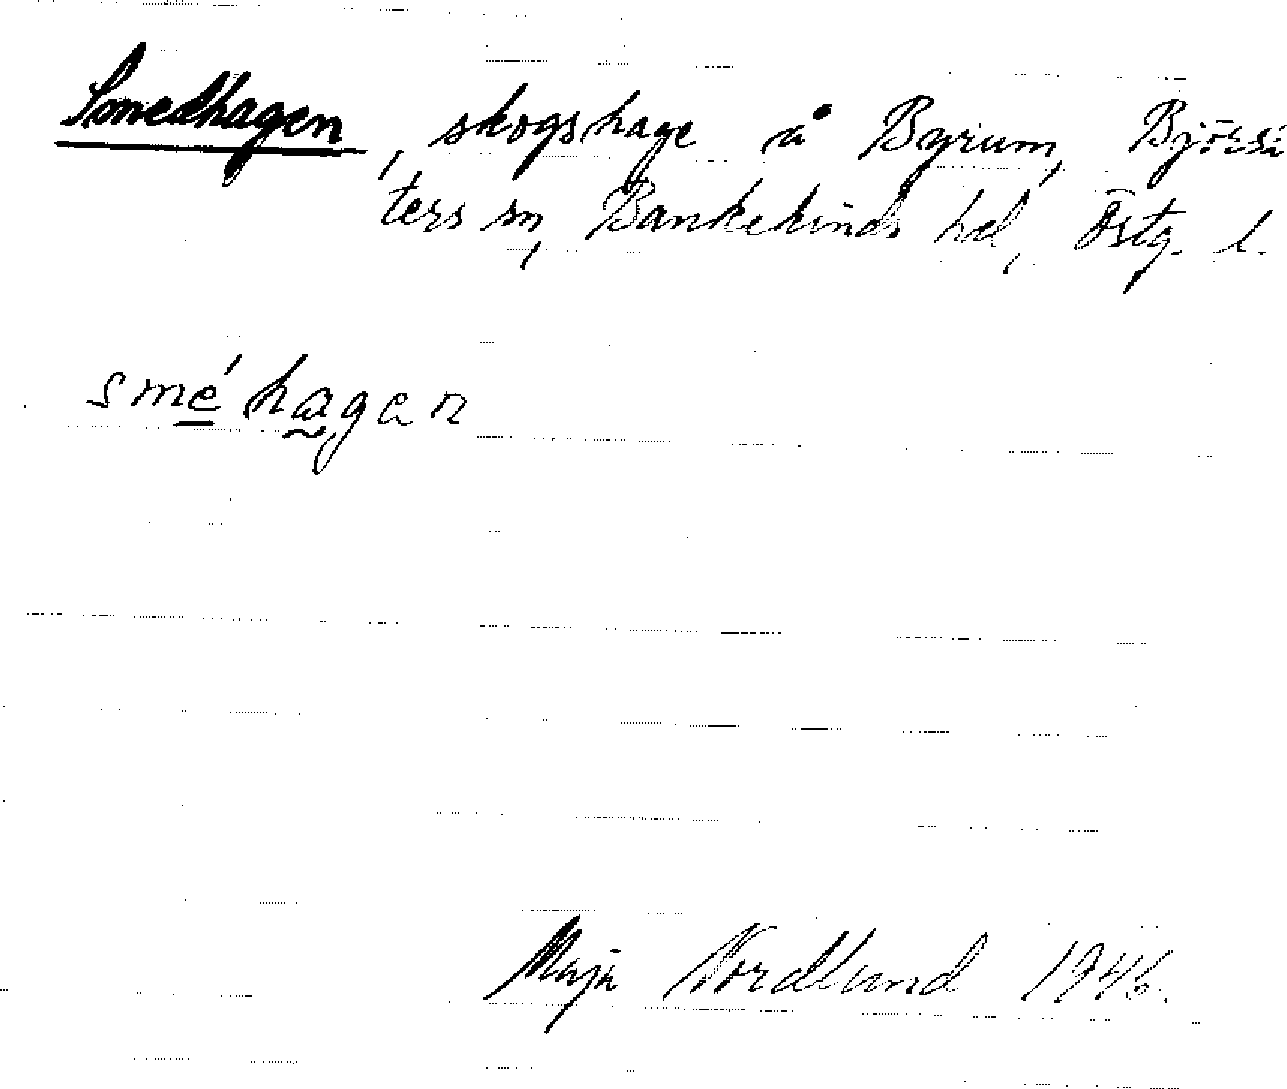 Smedhagen, skogshage å Byrum, Björsä
ters sn, Bankekinds hd, Östg. l.
sméhagan
Maja Nordlund 1946.